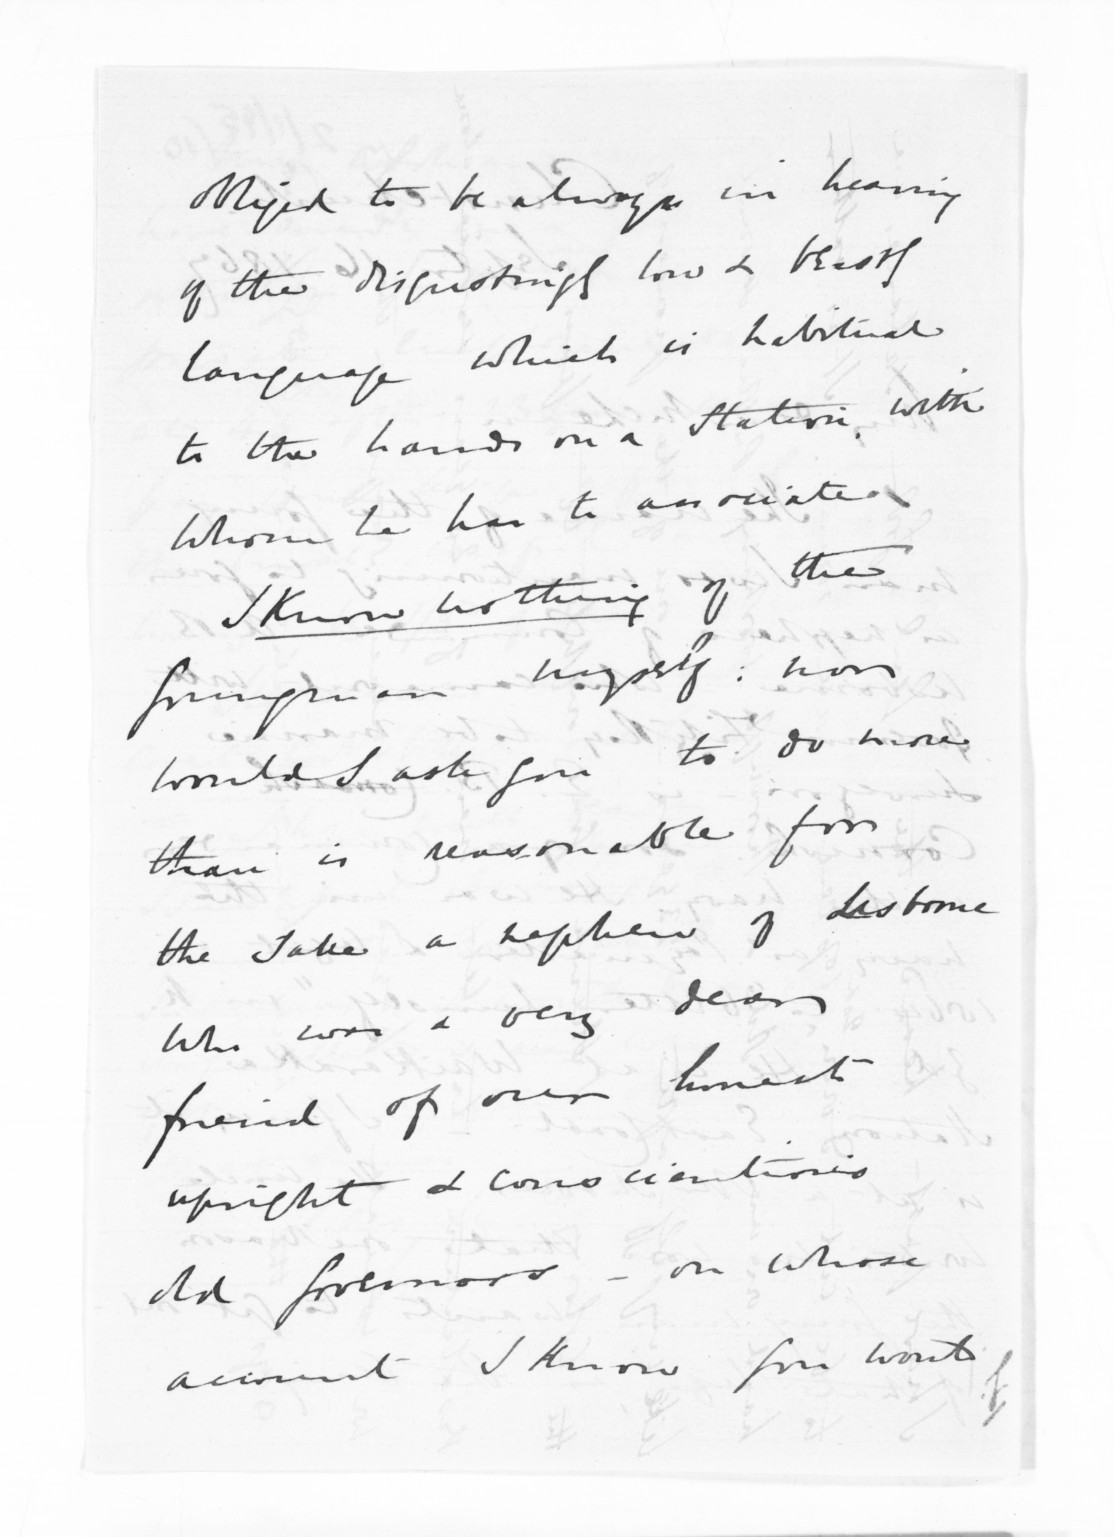 obliged to be always in hearing
of the disgustingly low & beastly
language which is habitual
to the hands on a Station, with
whom he has to associate
I know nothing of the
youngman myself: nor
would I ask you to do more
than is reasonable for
the sake a nephew of
who was a very dear
friend of our honest
upright & conscientious
old Governor - on whose
account I know you would